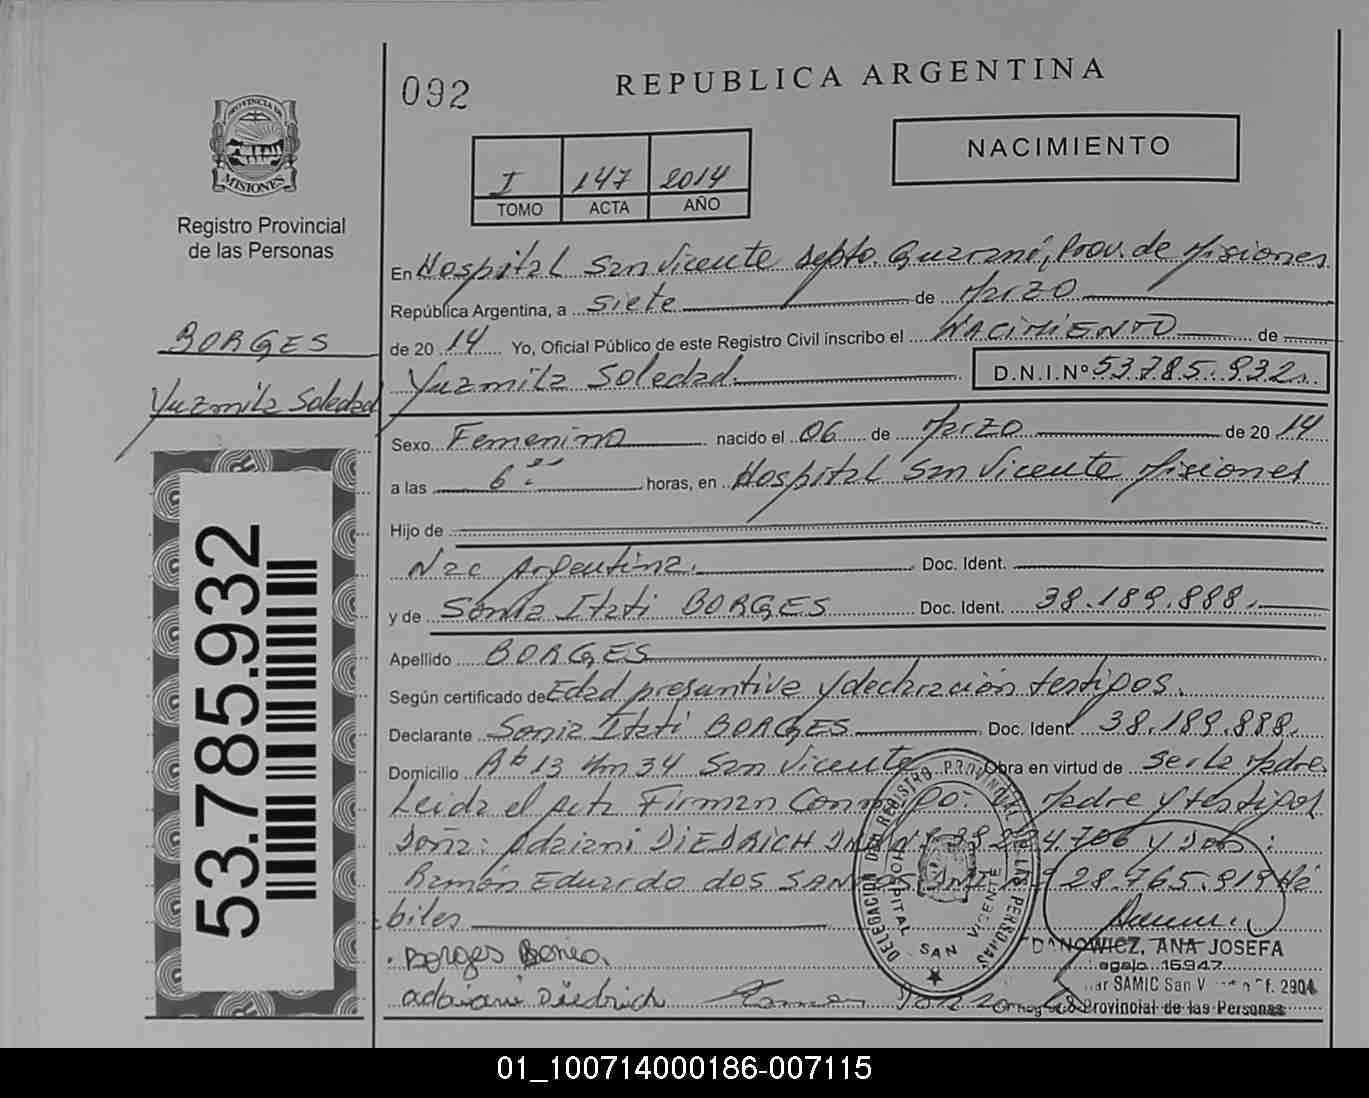 092
REPUBLICA ARGENTINA
NACIMIENTO
I 147 2014
TOMO ACTA AÑO
PROVINCIA DE
MISIONES
Registro Provincial
de las Personas
BORGES
Yuzmila Soledad
53.785.932
En Hospital San Vicente Depto. Guaraní, Prov. de Misiones
República Argentina, a siete de Marzo
de 2014 Yo, Oficial Público de este Registro Civil inscribo el NACIMIENTO de
Yuzmila Soledad D.N.I.Nº 53.785.932
Sexo Femenino nacido el 06 de Marzo de 2014
a las 6 horas, en Hospital San Vicente Misiones
Hijo de
Nac Argentina. Doc. Ident.
y de Sonia Itati BORGES Doc. Ident. 38.189.888.
Apellido BORGES
Según certificado de Edad presuntiva y declaración testigos.
Declarante Sonia Itati BORGES Doc. Ident. 38.189.888.
Domicilio Rt 13 Km 34 San Vicente Obra en virtud de ser la Madre
Leida el Acta Firman Conmigo: la Madre y testigos
Doña: Adriani DIEDRICH DNI Nº 38. 4.706 y Don:
Ramón Eduardo DOS SAN 28.765.919 Há
biles
Borges Sonia
adriani Diedrich
DELEGACION DEL REGISTRO PROVINCIAL DE LAS PERSONAS
HOSPITAL SAN VICENTE
NOWICZ, ANA JOSEFA
egajo 15947
ar SAMIC San V f. 2904
Registro Provincial de las Personas
01_100714000186-007115